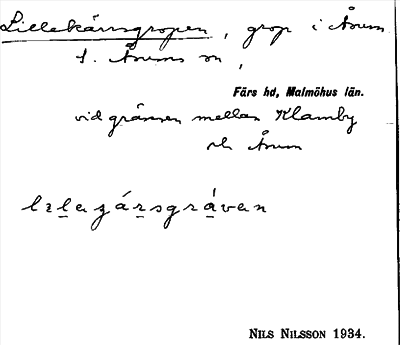 Lillekärrsgropen, grop i Årum
s. Årums sn,
Färs hd, Malmöhus län.
vid gränsen mellan Klamby
och Årum
NILS NILSSON 1934.